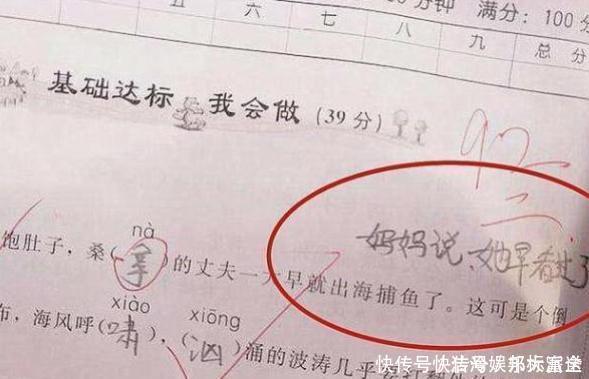 分钟 满分：100 分
五 六 七 八 九 总 分
基础达标 我会做 (39 分)
92
妈妈说,她早看过了
nà
饱肚子，桑(拿)的丈夫一大早就出海捕鱼了。这可是个倒
xiào xiōng
布，海风呼(啸)，(汹)涌的波涛几乎
快传号